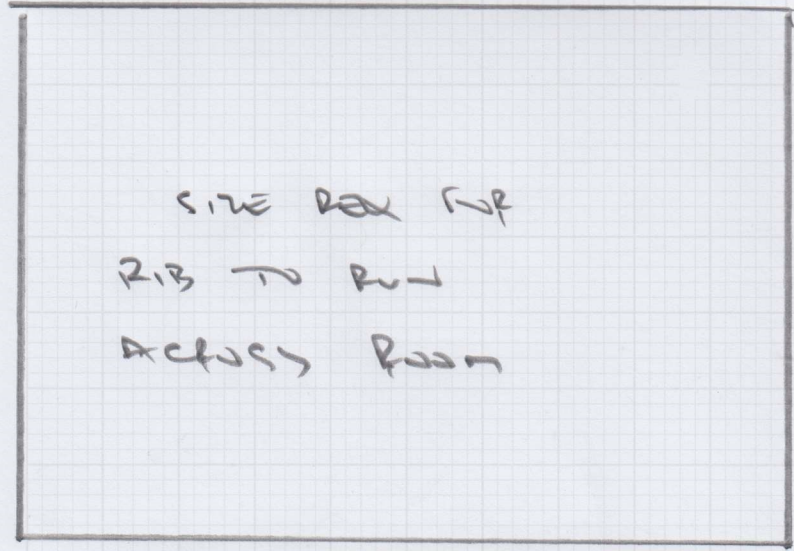 SIZE BOX FOR
RIB TO RUN
ACROSS ROOM